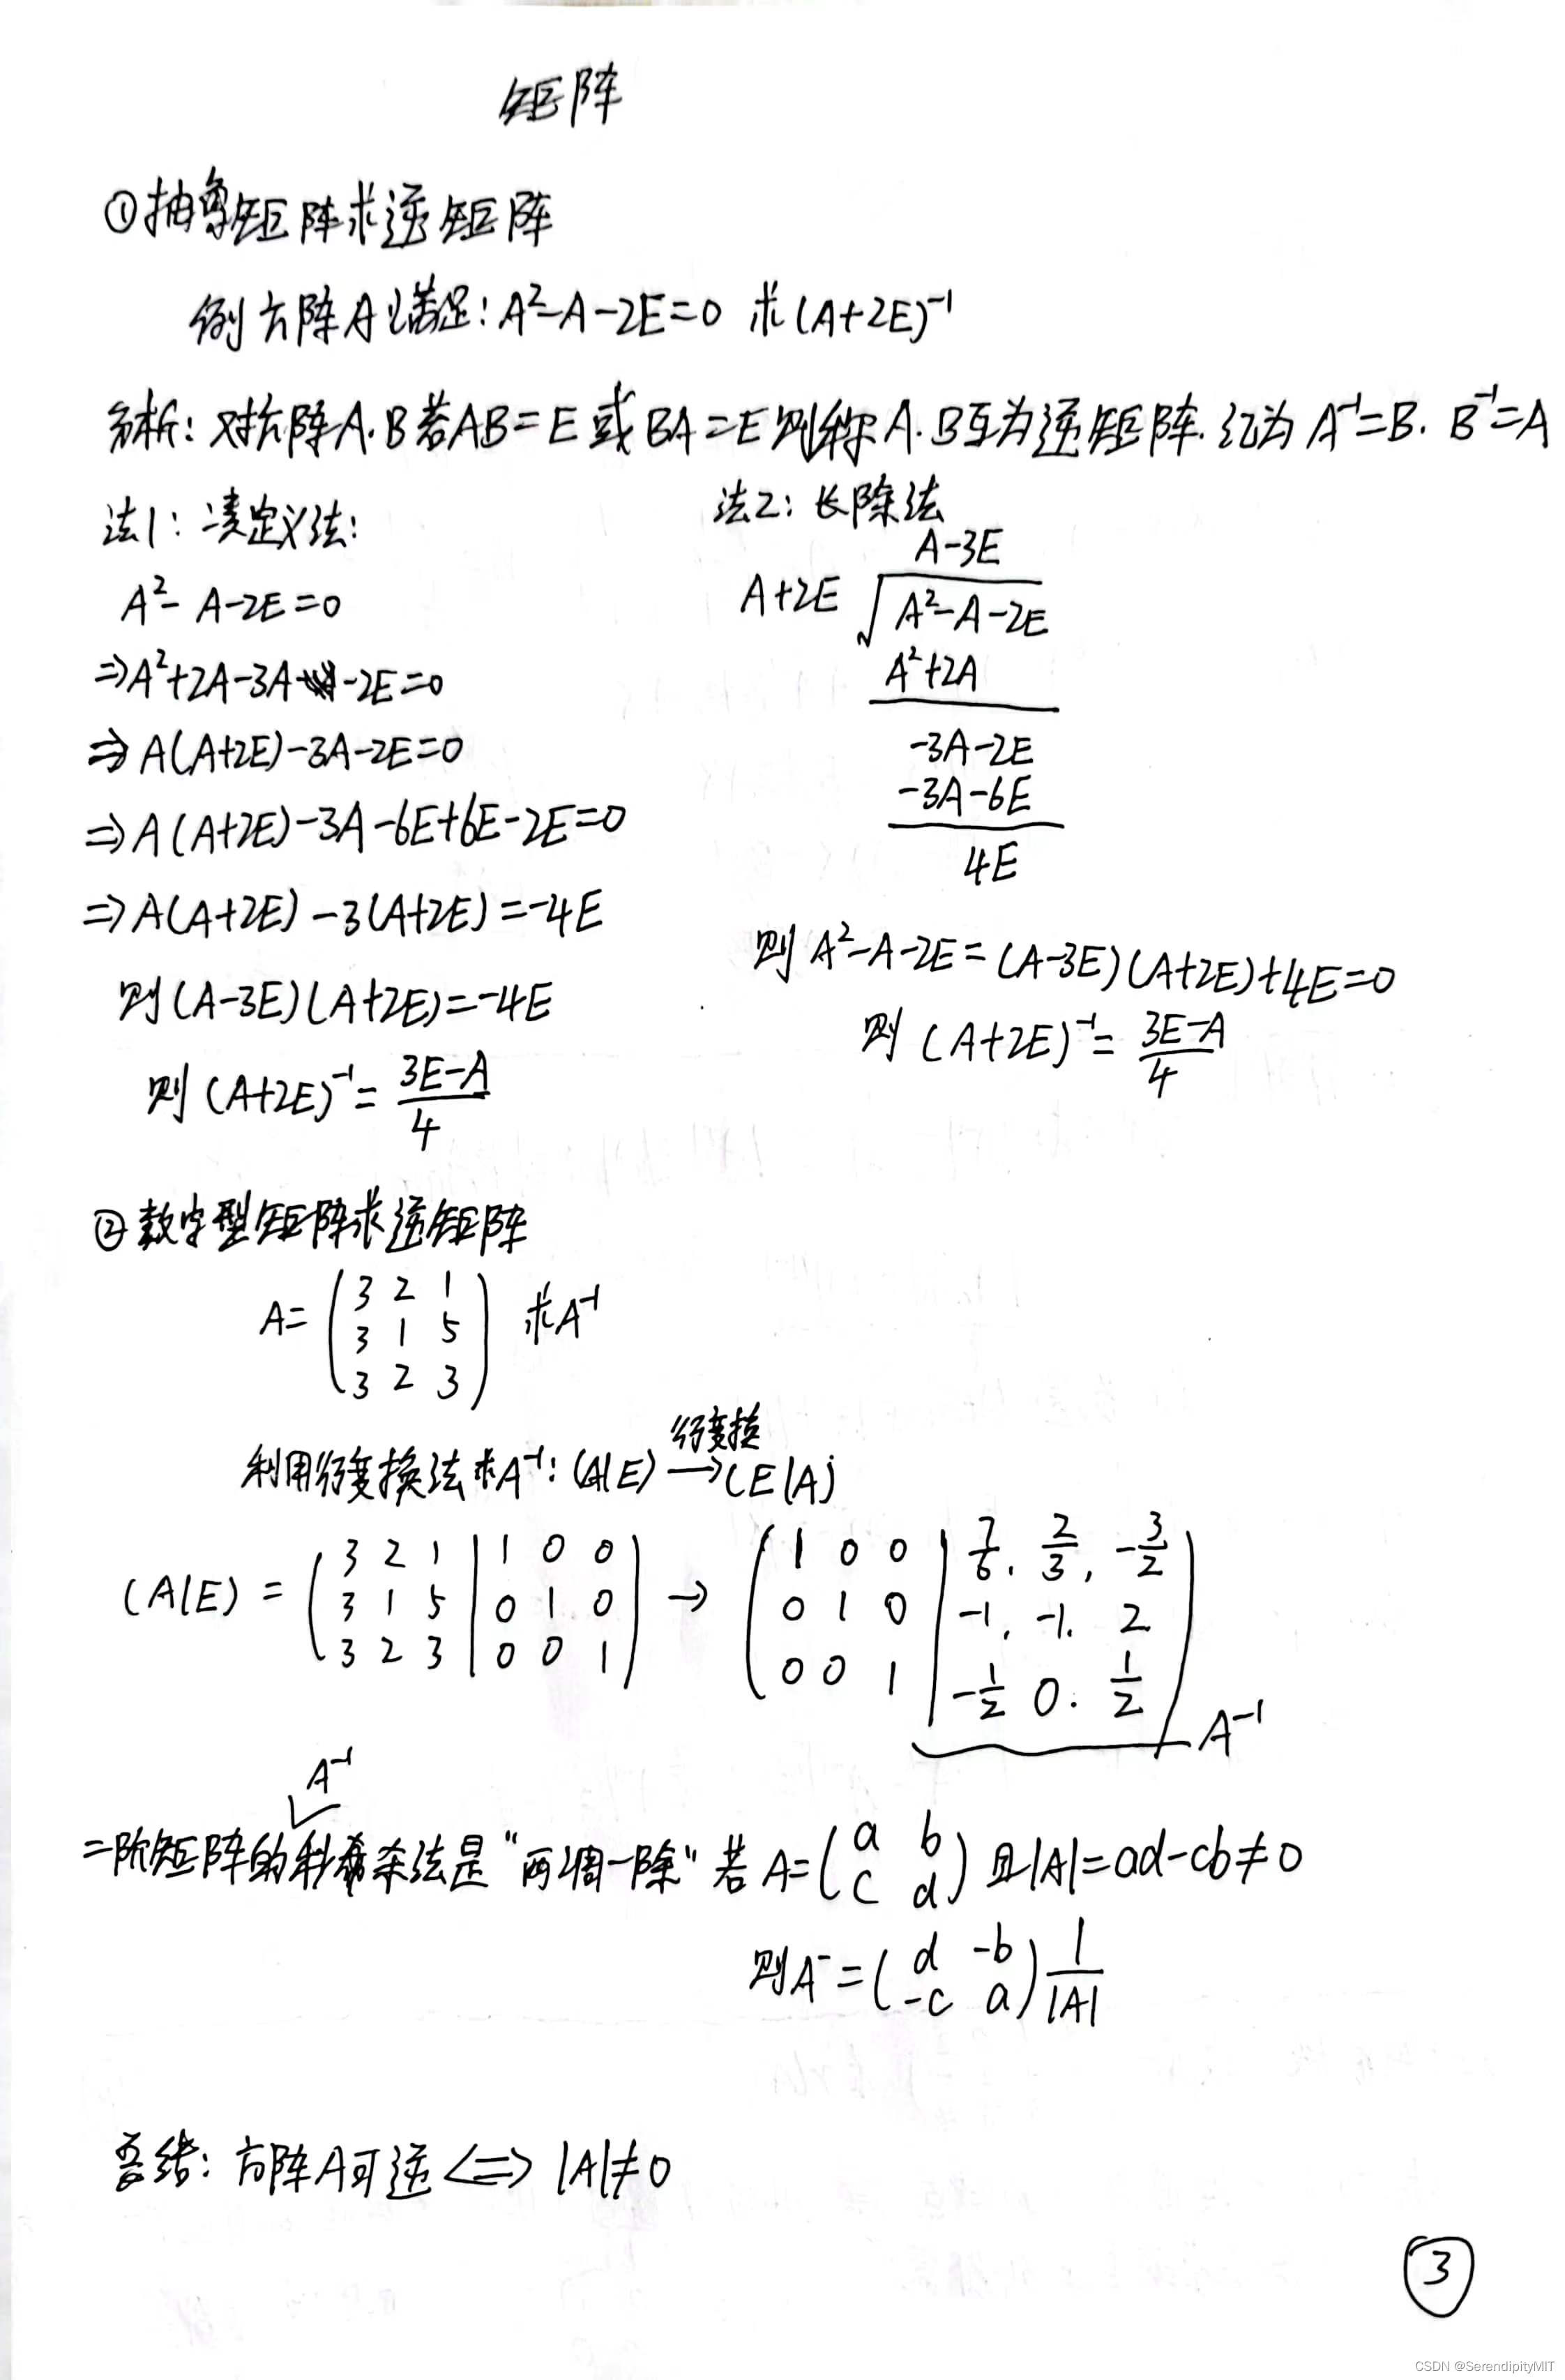 矩阵
①抽象矩阵求逆矩阵
例 方阵A满足: A²-A-2E=0 求(A+2E)⁻¹
分析: 对方阵A.B若AB=E或BA=E则称A.B互为逆矩阵.记为A⁻¹=B. B⁻¹=A
法1: 凑定义法:
A²-A-2E=0
⇒A²+2A-3A-2E=0
⇒A(A+2E)-3A-2E=0
⇒A(A+2E)-3A-6E+6E-2E=0
⇒A(A+2E)-3(A+2E)=-4E
则(A-3E)(A+2E)=-4E
则(A+2E)⁻¹=(3E-A)/4
法2: 长除法
A-3E
A+2E √A²-A-2E
A²+2A
-3A-2E
-3A-6E
4E
则A²-A-2E=(A-3E)(A+2E)+4E=0
则(A+2E)⁻¹=(3E-A)/4
②数字型矩阵求逆矩阵
A= 3 2 1 求A⁻¹
3 1 5
3 2 3
行变换
利用行变换法求A⁻¹: (A|E)→(E|A)
(A|E) = 3 2 1 | 1 0 0 → 1 0 0 | 7/6, 2/3, -3/2
3 1 5 | 0 1 0 0 1 0 | -1, -1. 2
3 2 3 | 0 0 1 0 0 1 | -1/2 0. 1/2
A⁻¹
A⁻¹
二阶矩阵的秒杀法是"两调一除"若A=(a b c d)且|A|=ad-cb≠0
则A⁻=(d -b -c a)1/|A|
总结: 方阵A可逆<=>|A|≠0
3
CSDN @SerendipityMIT